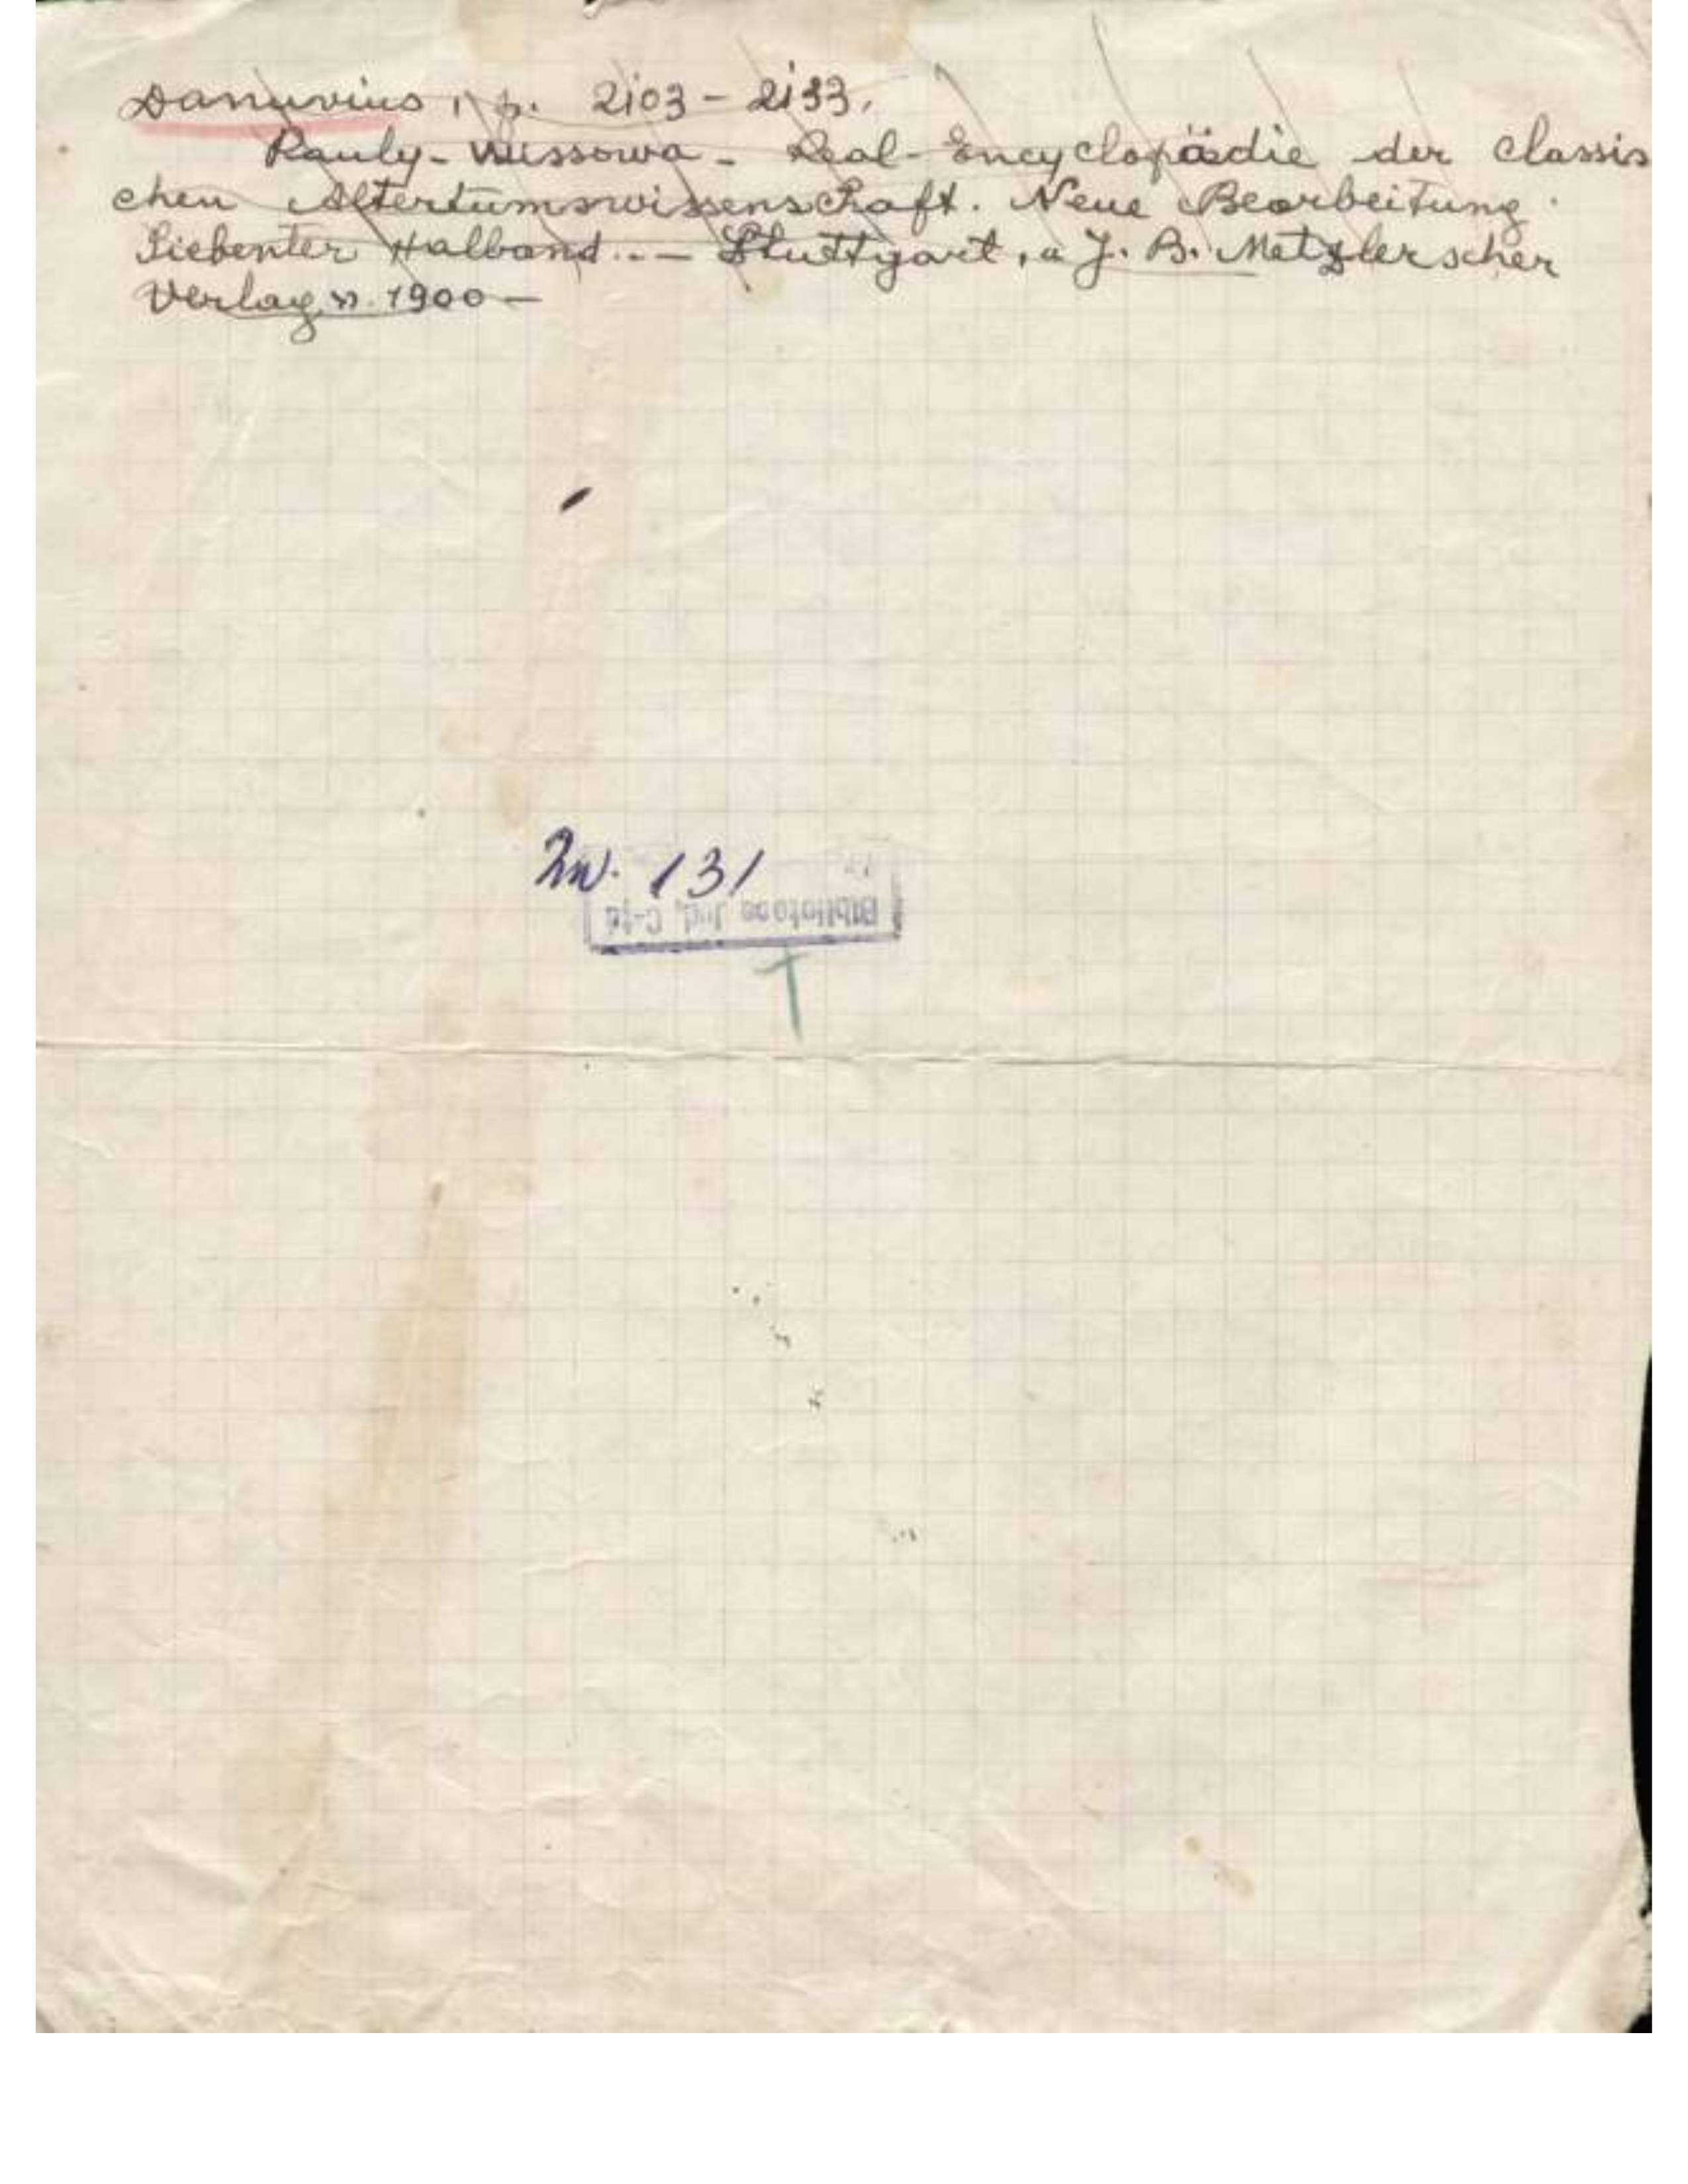 Danuvius, p. 2103 - 2133.
Pauly - Wissowa - Real - Encyclopädie der classis
chen Altertumswissenschaft. Neue Bearbeitung.
Siebenter Halband.. - Stuttgart, „ J. B. Metzlerscher
Verlag, ". 1900 -
Inv. 131
Biblioteca Jud. C-ța